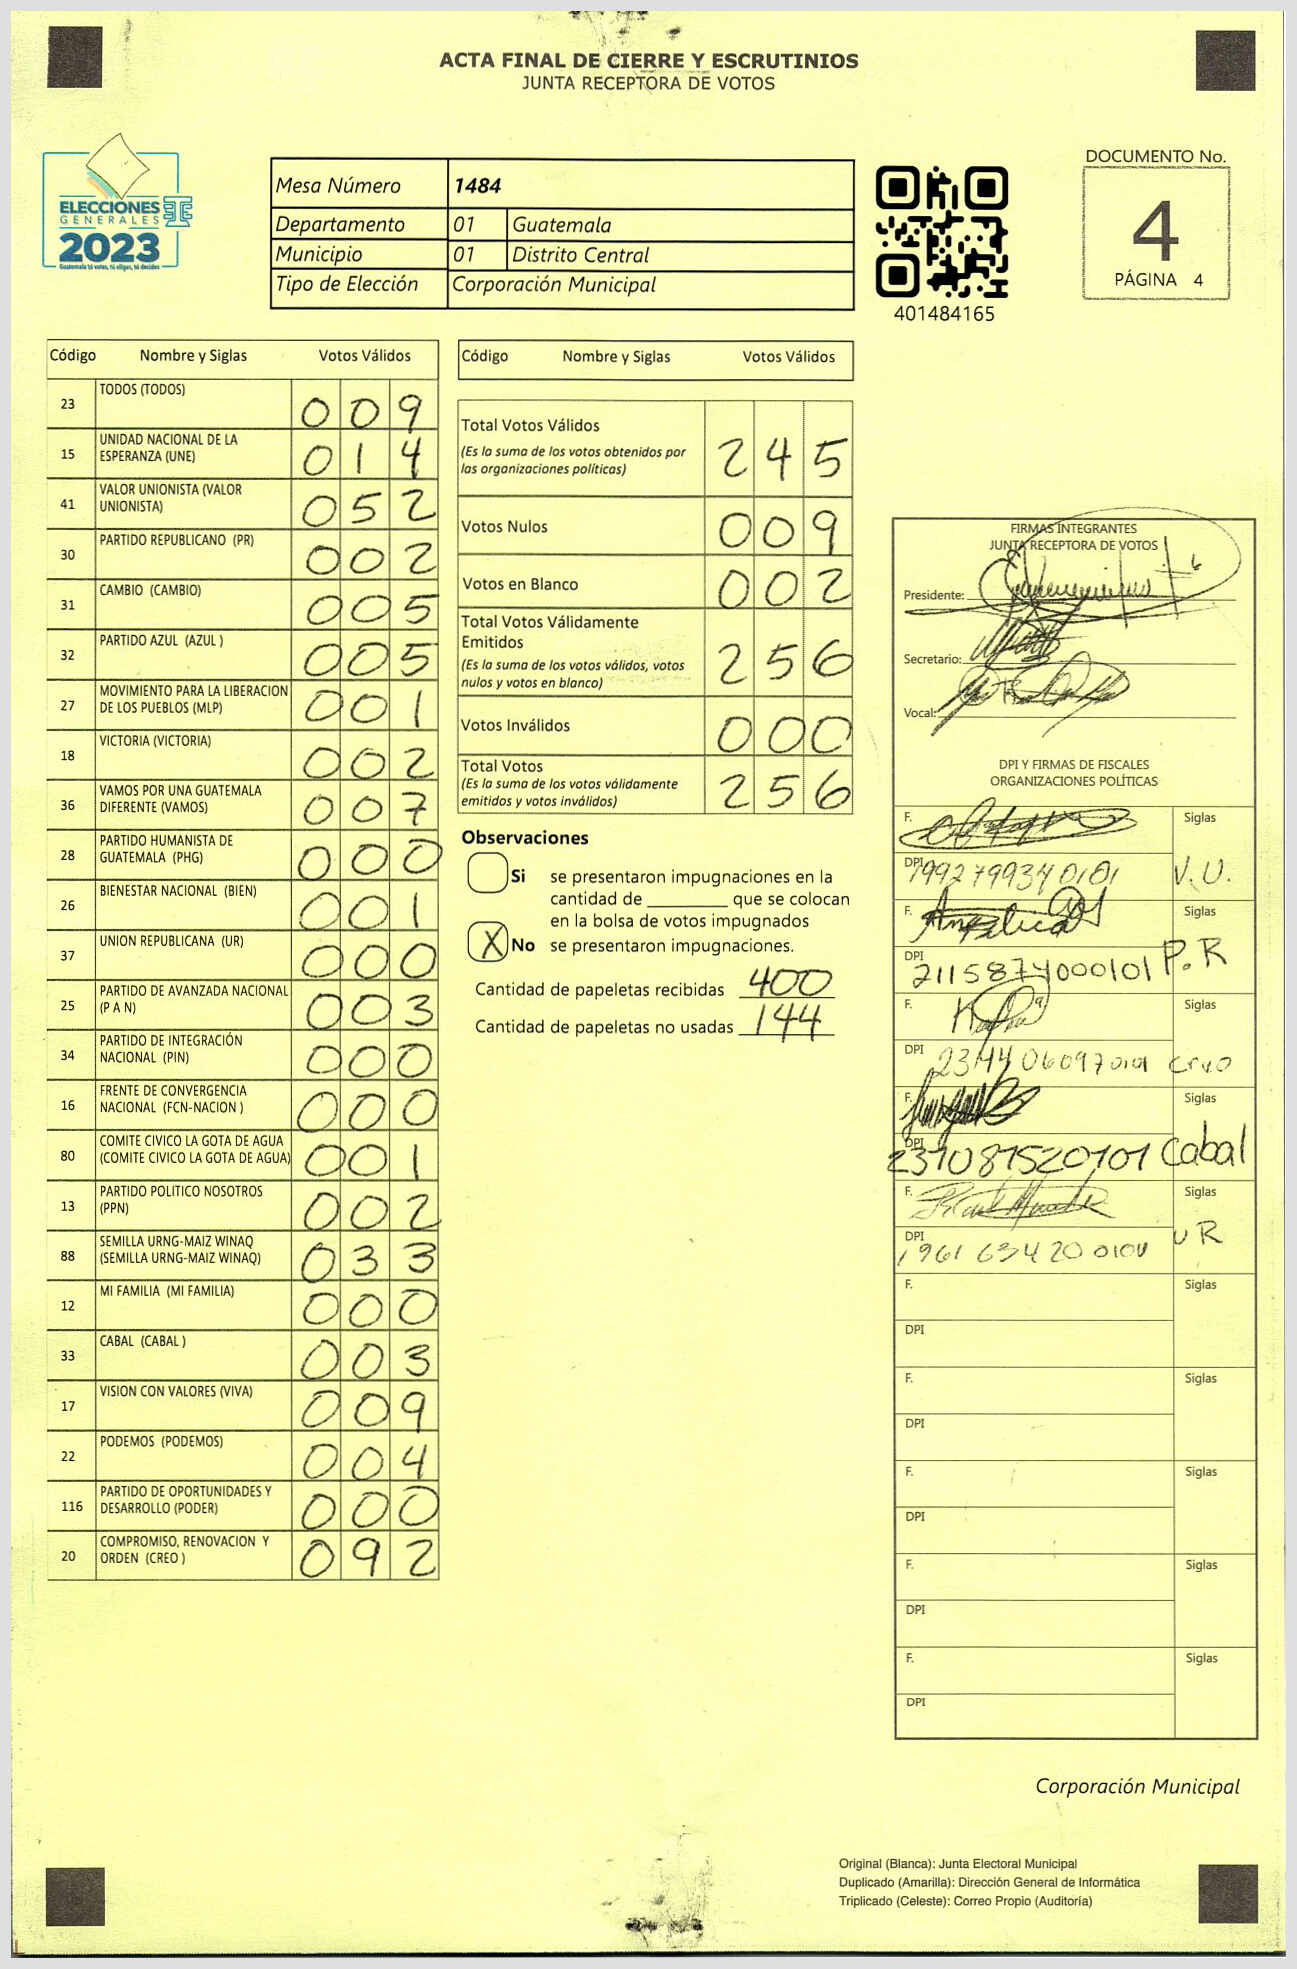 ACTA FINAL DE CIERRE Y ESCRUTINIOS
JUNTA RECEPTORA DE VOTOS
ELECCIONES
GENERALES
2023
Guatemala tú votas, tú eliges, tú decides
Mesa Número 1484
Departamento 01 Guatemala
Municipio 01 Distrito Central
Tipo de Elección Corporación Municipal
401484165
DOCUMENTO No.
4
PÁGINA 4
Código Nombre y Siglas Votos Válidos
23 TODOS (TODOS) 009
15 UNIDAD NACIONAL DE LA
ESPERANZA (UNE) 014
41 VALOR UNIONISTA (VALOR
UNIONISTA) 052
30 PARTIDO REPUBLICANO (PR) 002
31 CAMBIO (CAMBIO) 005
32 PARTIDO AZUL (AZUL ) 005
27 MOVIMIENTO PARA LA LIBERACION
DE LOS PUEBLOS (MLP) 001
18 VICTORIA (VICTORIA) 002
36 VAMOS POR UNA GUATEMALA
DIFERENTE (VAMOS) 007
28 PARTIDO HUMANISTA DE
GUATEMALA (PHG) 000
26 BIENESTAR NACIONAL (BIEN) 001
37 UNION REPUBLICANA (UR) 000
25 PARTIDO DE AVANZADA NACIONAL
(P A N) 003
34 PARTIDO DE INTEGRACIÓN
NACIONAL (PIN) 000
16 FRENTE DE CONVERGENCIA
NACIONAL (FCN-NACION ) 000
80 COMITE CIVICO LA GOTA DE AGUA
(COMITE CIVICO LA GOTA DE AGUA) 001
13 PARTIDO POLITICO NOSOTROS
(PPN) 002
88 SEMILLA URNG-MAIZ WINAQ
(SEMILLA URNG-MAIZ WINAQ) 033
12 MI FAMILIA (MI FAMILIA) 000
33 CABAL (CABAL ) 003
17 VISION CON VALORES (VIVA) 009
22 PODEMOS (PODEMOS) 004
116 PARTIDO DE OPORTUNIDADES Y
DESARROLLO (PODER) 000
20 COMPROMISO, RENOVACION Y
ORDEN (CREO ) 092
Código Nombre y Siglas Votos Válidos
Total Votos Válidos
(Es la suma de los votos obtenidos por
las organizaciones políticas) 245
Votos Nulos 009
Votos en Blanco 002
Total Votos Válidamente
Emitidos
(Es la suma de los votos válidos, votos
nulos y votos en blanco) 256
Votos Inválidos 000
Total Votos
(Es la suma de los votos válidamente
emitidos y votos inválidos) 256
Observaciones
Si se presentaron impugnaciones en la
cantidad de ________ que se colocan
en la bolsa de votos impugnados
X No se presentaron impugnaciones.
Cantidad de papeletas recibidas 400
Cantidad de papeletas no usadas 144
FIRMAS INTEGRANTES
JUNTA RECEPTORA DE VOTOS
Presidente:
Secretario:
Vocal:
DPI Y FIRMAS DE FISCALES
ORGANIZACIONES POLÍTICAS
F. Siglas
DPI 1992799340101 V.U.
F. Angelica Siglas
DPI 2115874000101 P.R
F. Siglas
DPI 2344060970101 creo
F. Siglas
DPI Cabal
F. Siglas
DPI UR
F. Siglas
DPI
F. Siglas
DPI
F. Siglas
DPI
F. Siglas
DPI
F. Siglas
DPI
Corporación Municipal
Original (Blanca): Junta Electoral Municipal
Duplicado (Amarilla): Dirección General de Informática
Triplicado (Celeste): Correo Propio (Auditoría)